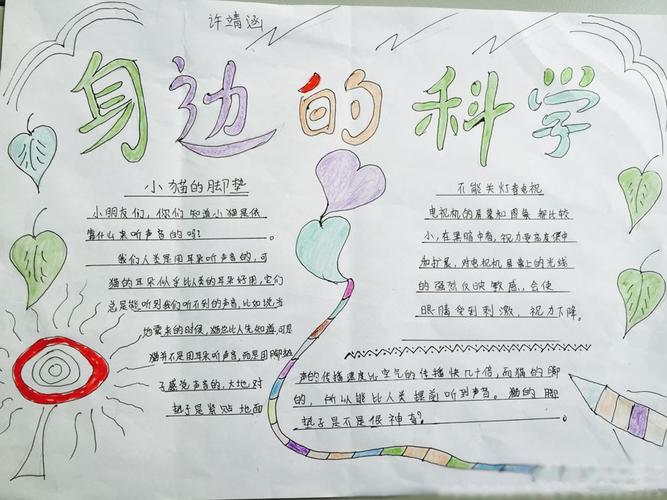 许靖涵
身边的科学
小猫的脚垫
小朋友们，你们知道小猫是依
靠什么来听声音的吗？
我们人类是用耳朵听声音的，可
猫的耳朵似乎比人类的耳朵好用，它们
总是能听到我们听不到的声音，比如说当
地震来的时候，猫总比人先知道，可是
猫并不是用耳朵听声音，而是用脚垫
子感觉声音的，大地，对
垫子是紧贴地面
声的传播速度比空气的传播快几十倍，而猫的脚
的，所以能比人类提前听到声音。猫的脚
垫子是不是很神奇？
不能关灯看电视
电视机的屏幕和图象都比较
小，在黑暗中看，视力
加扩展，对电视机屏幕上的光线
的强烈反映敏感，会使
眼睛受到刺激，视力下降。